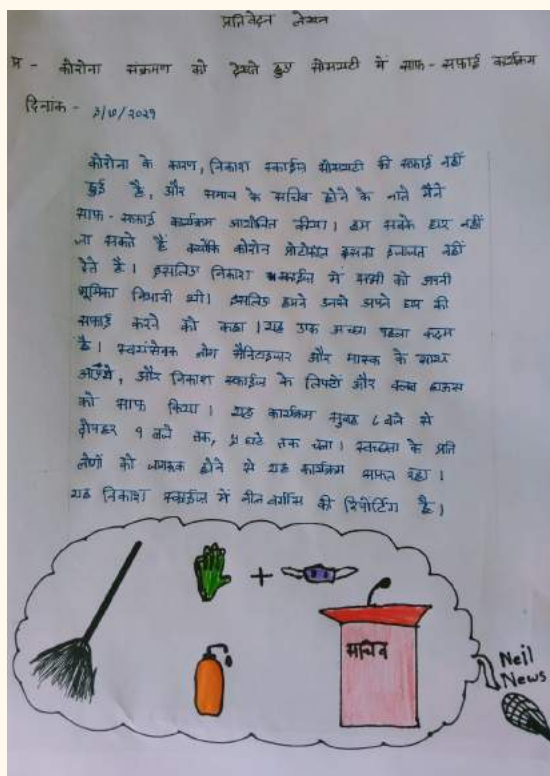 प्रतिवेदन लेखन
प्र - कोरोना संक्रमण को देखते हुए सोसायटी में साफ-सफाई कार्यक्रम
दिनांक -
कोरोना के कारण, निकाश स्काईज सोसायटी की सफाई नहीं
हुई है, और समाज के सचिव होने के नाते मैंने
साफ-सफाई कार्यक्रम आयोजित किया। हम सबके घर नहीं
जा सकते हैं क्योंकि कोरोन प्रोटोकॉल इसका इजाजत नहीं
देते है। इसलिए निकाश स्काईज में सभी को अपनी
भूमिका निभानी थी। इसलिए हमने उनसे अपने घर की
सफाई करने को कहा। यह एक अच्छा पहला कदम
है। स्वयंसेवक लोग सैनिटाइजर और मास्क के साथ
और निकाश स्काईज के लिफ्टों और क्लब हाऊस
को साफ किया। यह कार्यक्रम सुबह ८ बजे से
दोपहर १ बजे तक, ५ घंटे तक चला। स्वच्छता के प्रति
लोगों को जागरूक होने से यह कार्यक्रम सफल रहा।
यह निकाश स्काईज में नील वर्गीस की रिपोर्टिंग है।
सचिव
Neil
News